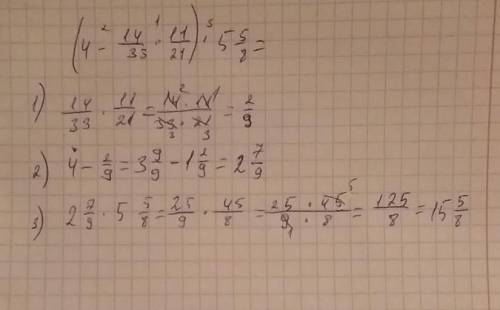 (4 -² 14/33 ·¹ 11/21) ·³ 5 5/8 =
1) 14/33 · 11/21 = 14² · 11¹ / 33₃ · 21₃ = 2/9
2) 4 - 2/9 = 3 9/9 - 1 2/9 = 2 7/9
3) 2 7/9 · 5 5/8 = 25/9 · 45/8 = 25 · 45⁵ / 9₁ · 8 = 125/8 = 15 5/8